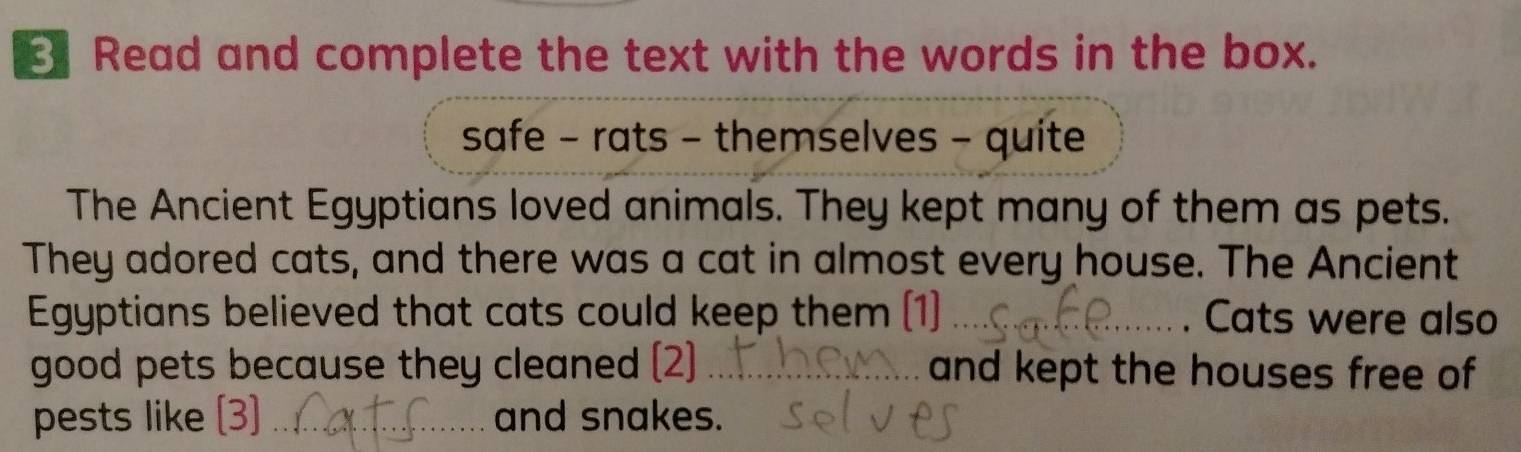 3 Read and complete the text with the words in the box.
safe - rats - themselves - quite
The Ancient Egyptians loved animals. They kept many of them as pets.
They adored cats, and there was a cat in almost every house. The Ancient
Egyptians believed that cats could keep them (1) safe. Cats were also
good pets because they cleaned (2) them and kept the houses free of
pests like (3) rats and snakes. selves